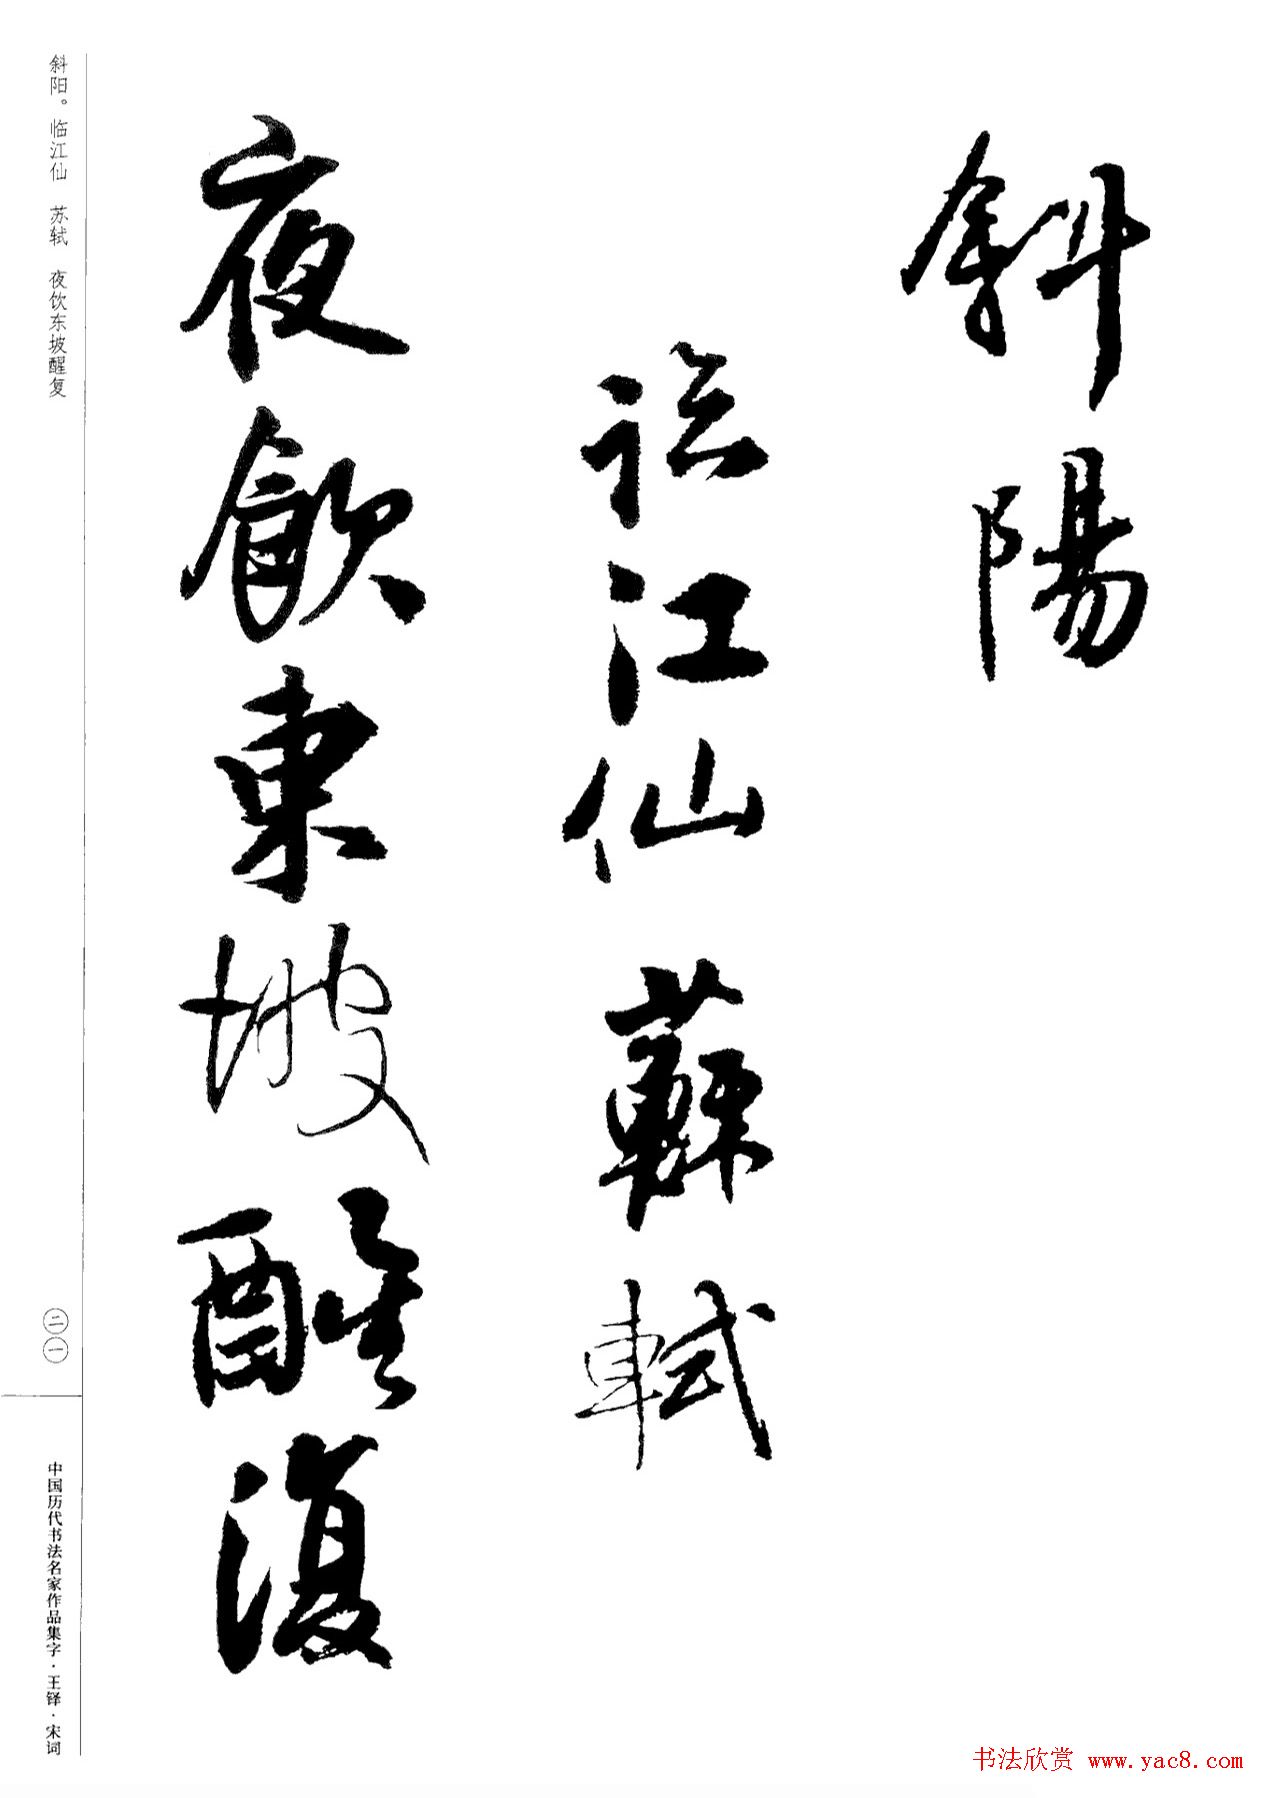 斜陽
臨江仙 蘇軾
夜飲東坡醒復
斜阳。临江仙 苏轼 夜饮东坡醒复
二一
中国历代书法名家作品集字·王铎·宋词
书法欣赏 www.yac8.com